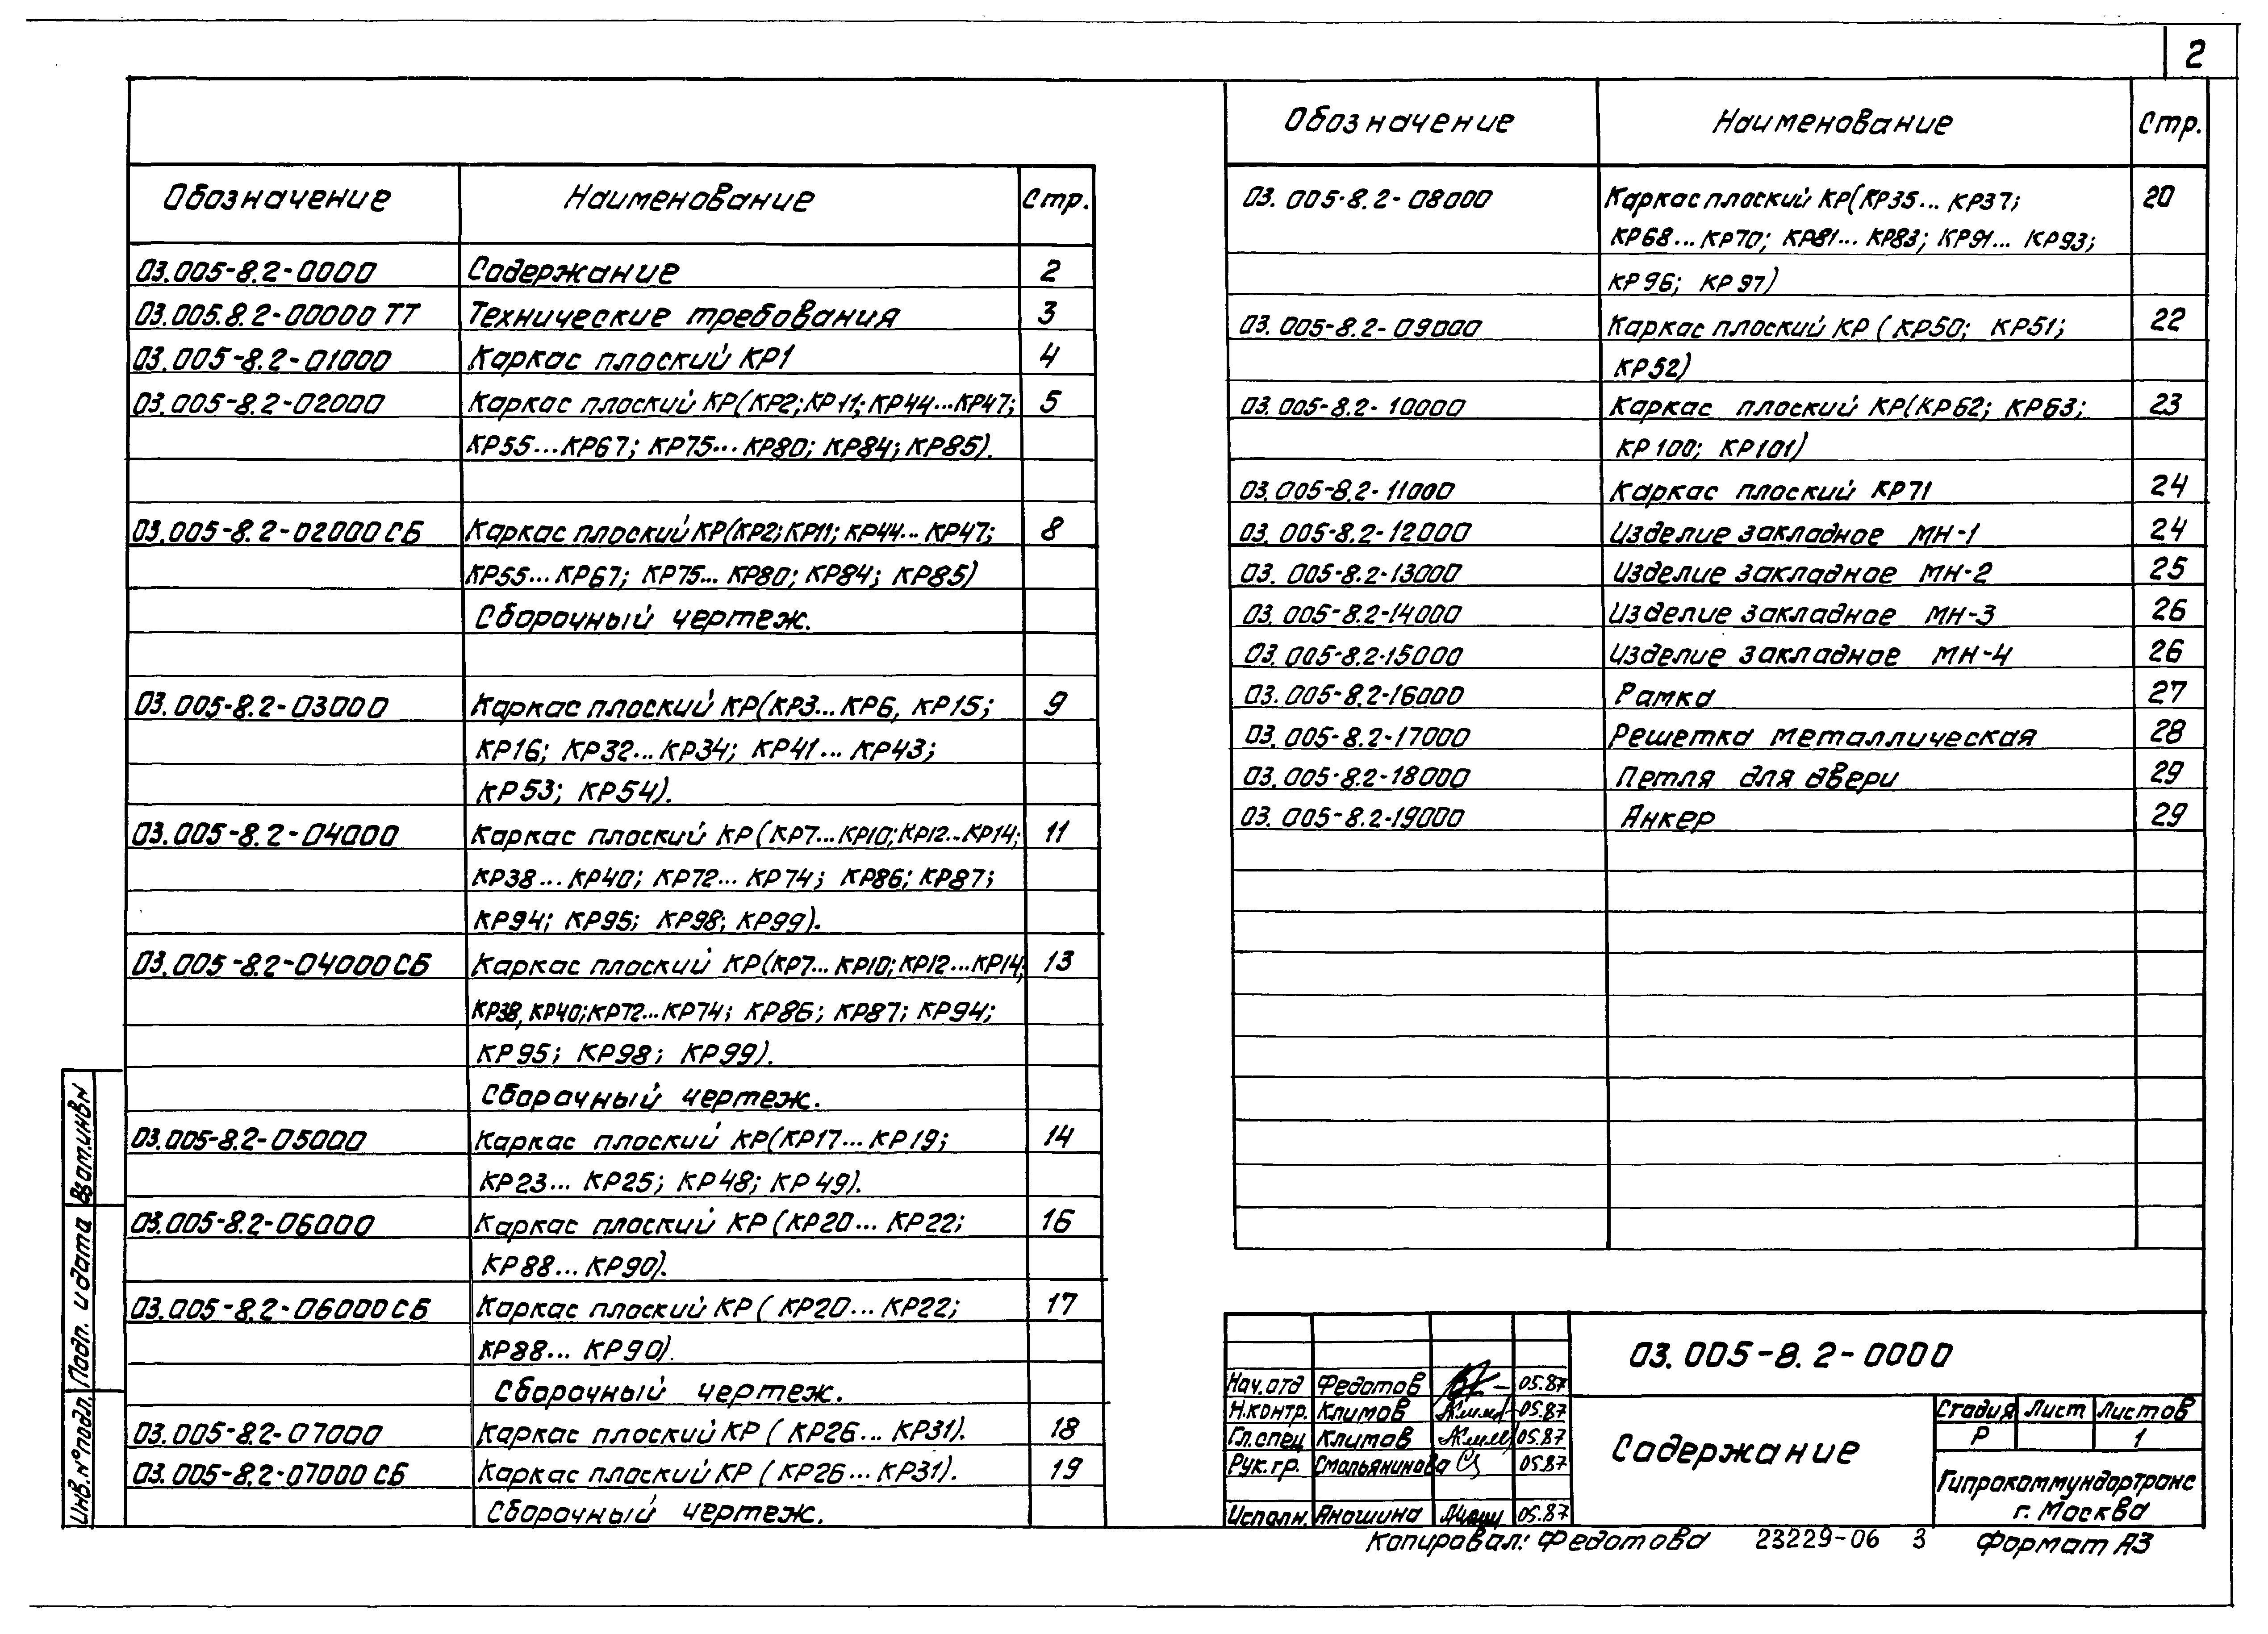 2
Обозначение Наименование Стр.
03.005-8.2-0000 Содержание 2
03.005.8.2-00000 ТТ Технические требования 3
03.005-8.2-01000 Каркас плоский КР1 4
03.005-8.2-02000 Каркас плоский КР(КР2; КР11; КР44...КР47; 5
КР55...КР67; КР75...КР80; КР84; КР85).
03.005-8.2-02000 СБ Каркас плоский КР(КР2; КР11; КР44... КР47; 8
КР55... КР67; КР75... КР80; КР84; КР85)
Сборочный чертеж.
03.005-8.2-03000 Каркас плоский КР(КР3... КР6, КР15; 9
КР16; КР32...КР34; КР41... КР43;
КР53; КР54).
03.005-8.2-04000 Каркас плоский КР (КР7...КР10; КР12...КР14; 11
КР38... КР40; КР72... КР74; КР86; КР87;
КР94; КР95; КР98; КР99).
03.005-8.2-04000 СБ Каркас плоский КР(КР7... КР10; КР12...КР14; 13
КР38, КР40; КР72...КР74; КР86; КР87; КР94;
КР95; КР98; КР99).
Сборочный чертеж.
03.005-8.2-05000 Каркас плоский КР(КР17... КР19; 14
КР23... КР25; КР48; КР49).
03.005-8.2-06000 Каркас плоский КР (КР20... КР22; 16
КР88... КР90).
03.005-8.2-06000 СБ Каркас плоский КР ( КР20... КР22; 17
КР88... КР90).
Сборочный чертеж.
03.005-8.2-07000 Каркас плоский КР ( КР26... КР31). 18
03.005-8.2-07000 СБ Каркас плоский КР ( КР26... КР31). 19
Сборочный чертеж.
Обозначение Наименование Стр.
03.005-8.2-08000 Каркас плоский КР(КР35... КР37; 20
КР68... КР70; КР81... КР83; КР91... КР93;
КР96; КР97)
03.005-8.2-09000 Каркас плоский КР ( КР50; КР51; 22
КР52)
03.005-8.2-10000 Каркас плоский КР(КР62; КР63; 23
КР100; КР101)
03.005-8.2-11000 Каркас плоский КР71 24
03.005-8.2-12000 Изделие закладное МН-1 24
03.005-8.2-13000 Изделие закладное МН-2 25
03.005-8.2-14000 Изделие закладное МН-3 26
03.005-8.2-15000 Изделие закладное МН-4 26
03.005-8.2-16000 Рамка 27
03.005-8.2-17000 Решетка металлическая 28
03.005-8.2-18000 Петля для двери 29
03.005-8.2-19000 Анкер 29
Взам.инв.N
Подп. и дата
Инв.N°подл.
03.005-8.2-0000
Нач.отд Федотов 05.87
Н.контр. Климов 05.87
Гл.спец Климов 05.87
Рук.гр. Смольянинова 05.87
Исполн. Аношина 05.87
Содержание
Стадия Лист Листов
Р 1
Гипрокоммундортранс
г. Москва
Копировал: Федотова 23229-06 3 Формат А3